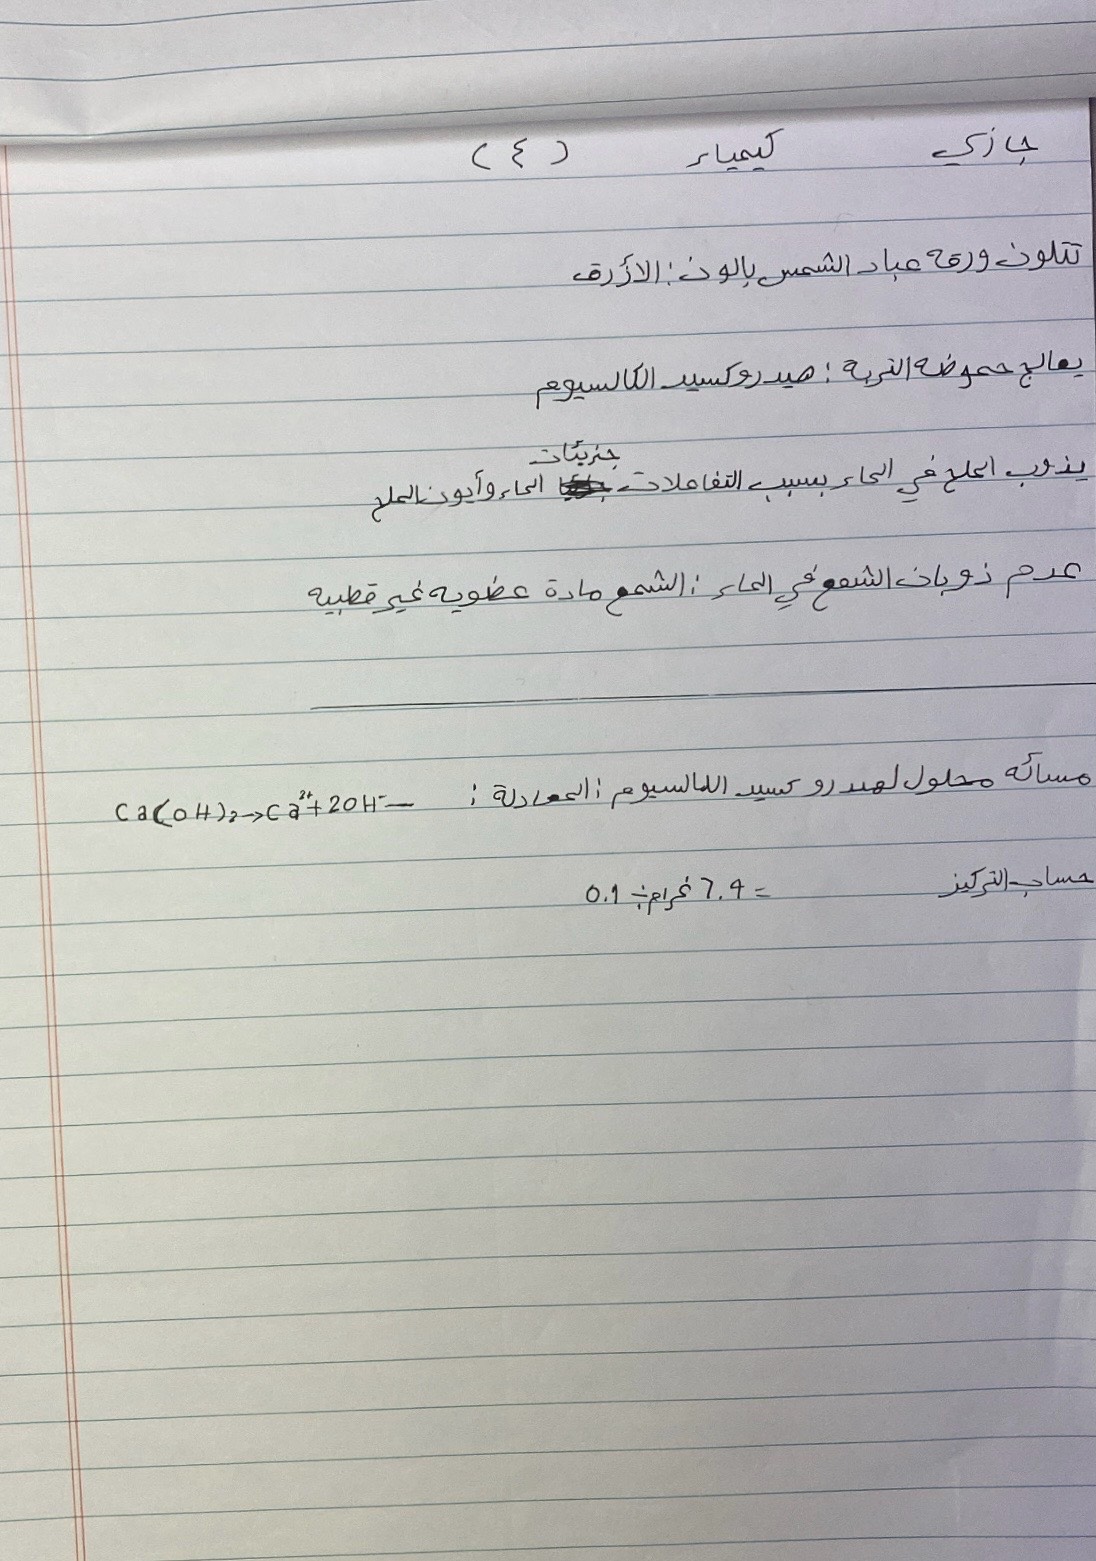 جازي كيمياء (٤)
تتلون ورقة عباد الشمس بالون: الأزرق
يعالج حموضة التربة: هيدروكسيد الكالسيوم
جزيئات
يذوب الملح في الماء بسبب التفاعلات الماء وأيون الملح
عدم ذوبان الشمع في الماء: الشمع مادة عضويه غير قطبيه
مسائله محلول لهيدروكسيد الكالسيوم: المعادلة: Ca(OH)₂→Ca²⁺+2OH⁻
حساب التركيز = 7.4 غرام ÷ 0.1